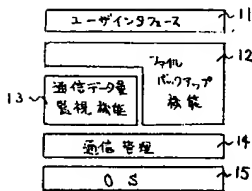 ユーザインタフェース
11
ファイル
バックアップ
機能
12
13
通信データ量
監視機能
通信管理
14
OS
15